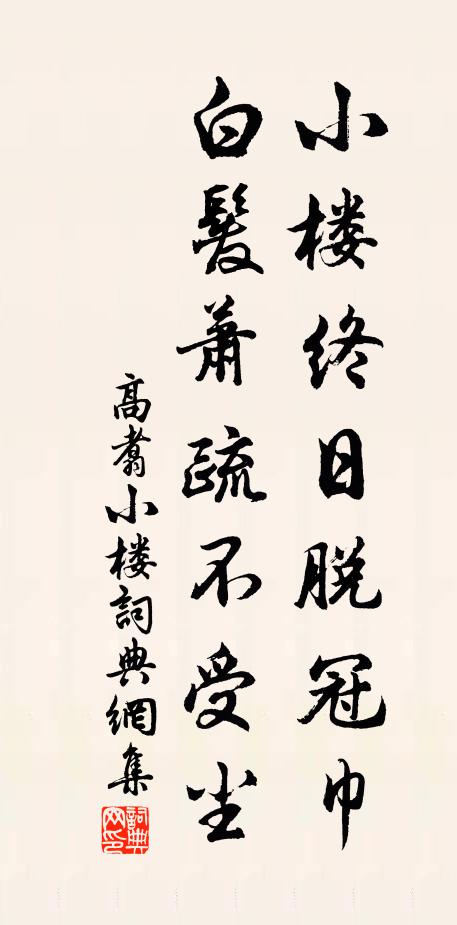 小楼終日脱冠巾
白髮蕭疏不受尘
高翥小楼詞典網集
詞典网印